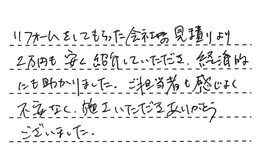 リフォームをしてもらった会社の見積りより
2万円も安く紹介していただき、経済的
にも助かりました。ご担当者も感じよく
不安なく、施工いただきありがとう
ございました。